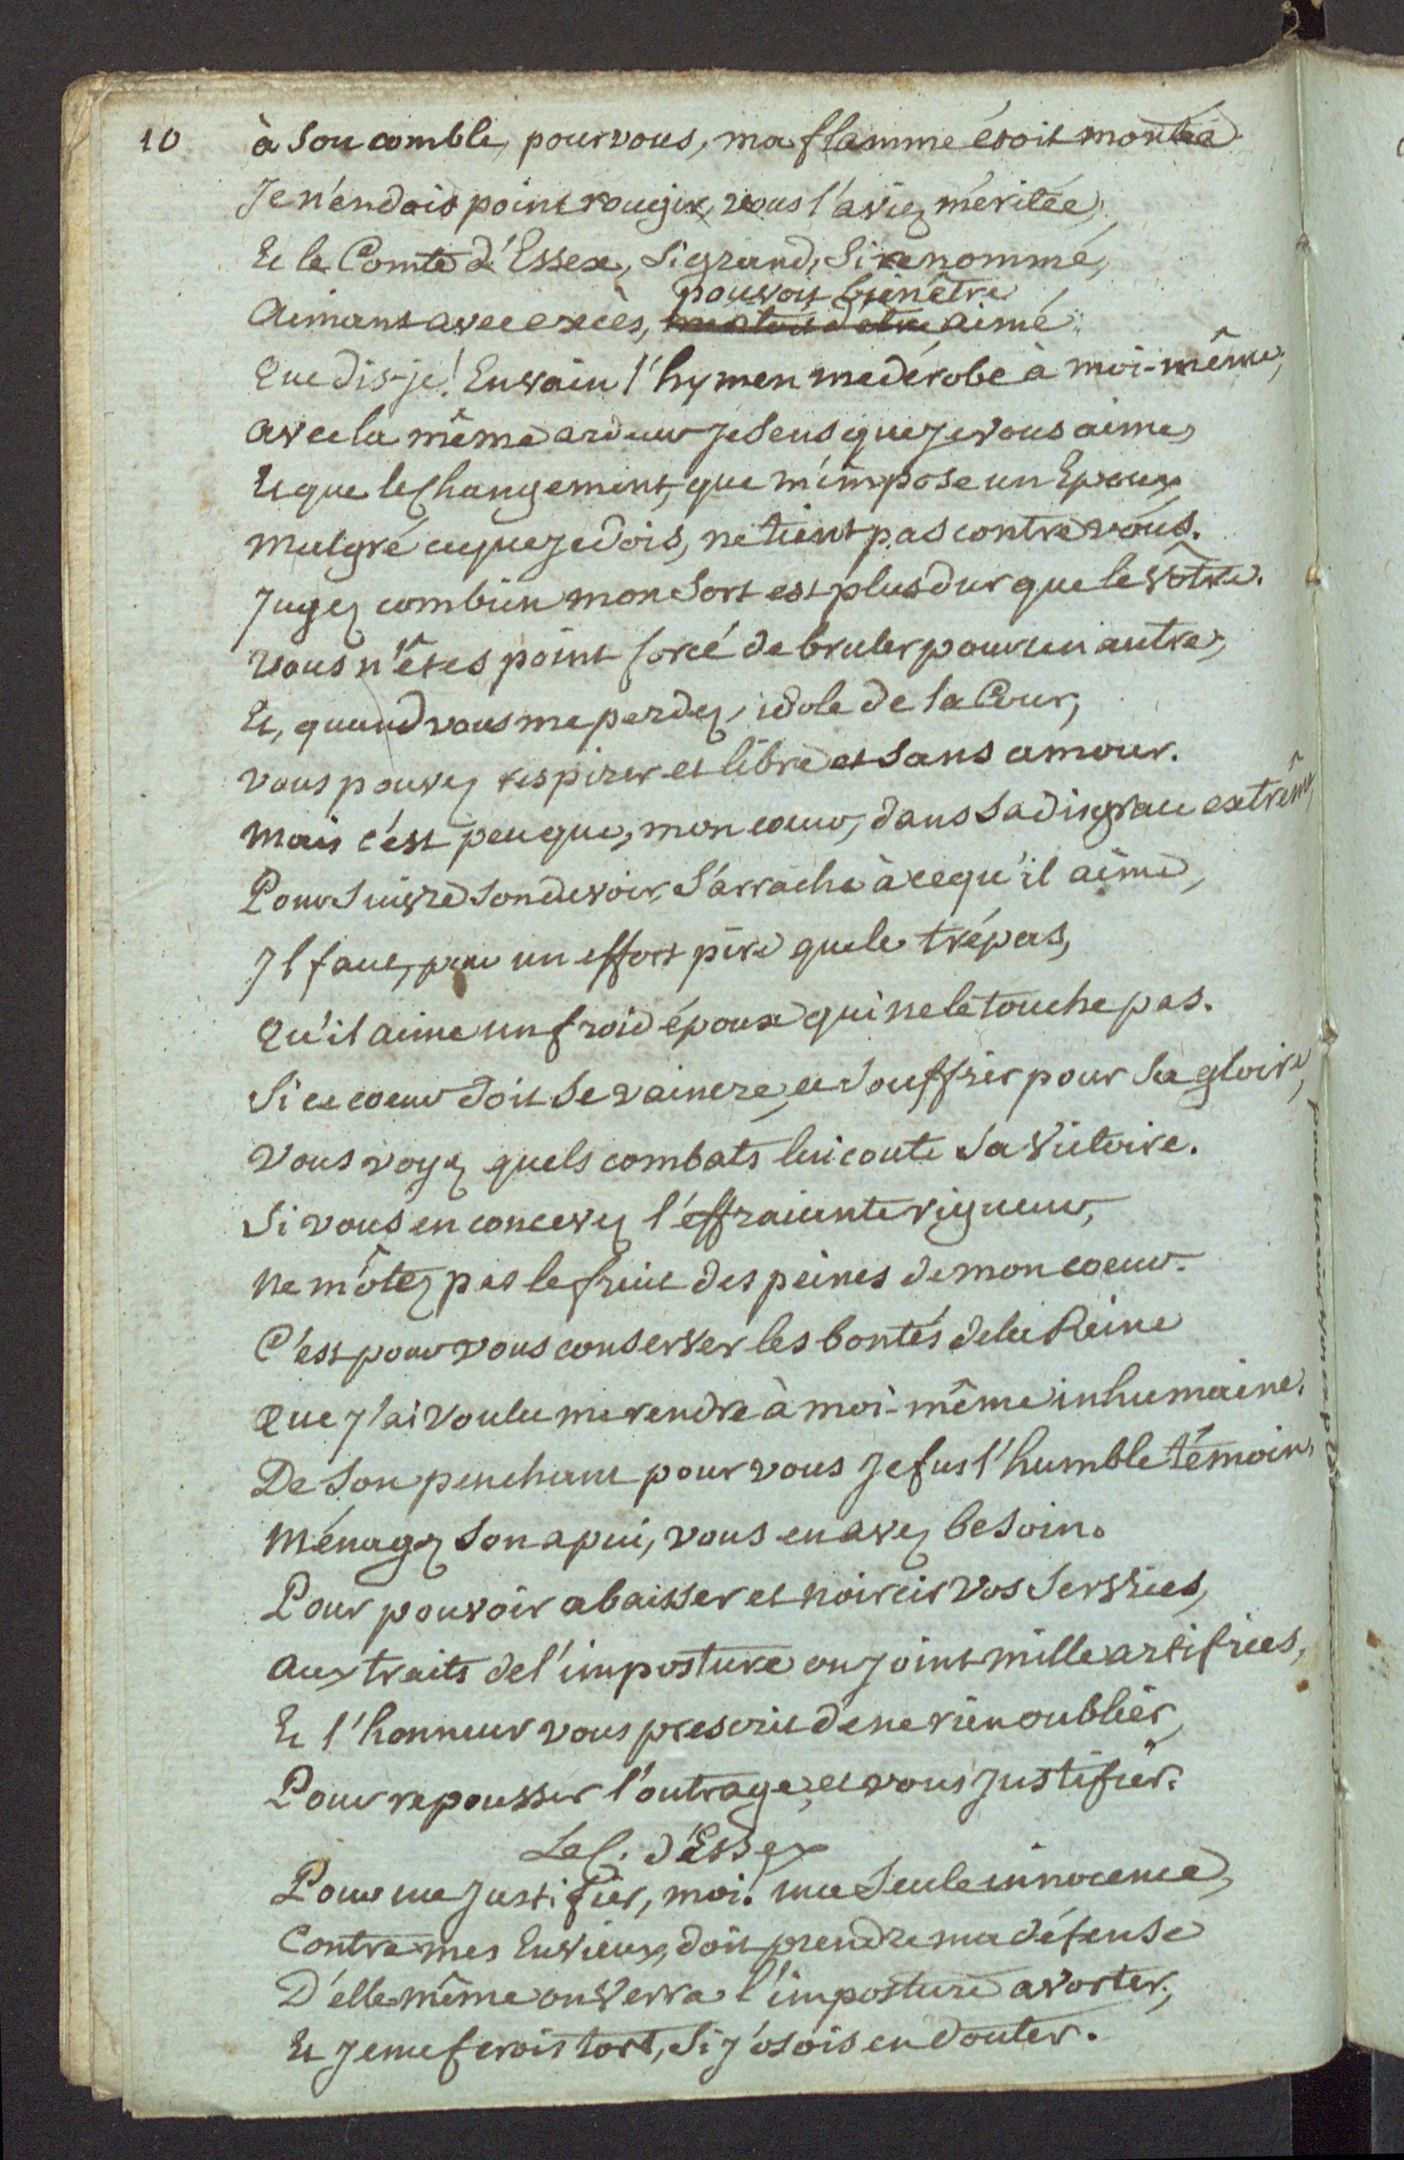 10
à Son comble, pour vous, ma flamme étoit montée
Je n'en dois point rougir, vous l'aviez méritée,
Et le Comte d'Essex, Si grand, Si renommé,
pouvoit bien être
Aimant avec excès, méritoit d'être aimé.
Que dis-je! En vain l'hymen me dérobe à moi-même,
avec la même ardeur je Sens que je vous aime,
Et que le Changement, que m'impose un Epoux,
malgré ce que je dois, ne tient pas contre vous.
Jugez combien mon Sort est plus dur que le vôtre.
Vous n'êtes point forcé de bruler pour un autre,
Et, quand vous me perdez, idole de la Cour,
Vous pouvez respirer et libre et Sans amour.
Mais c'est peu que, mon coeur, dans Sa disgrace extrême,
Pour Suivre Son devoir, S'arrache à ce qu'il aime,
Il faut, par un effort pire que le trépas,
Qu'il aime un froid époux qui ne le touche pas.
Si ce coeur doit Se vaincre, et Souffrir pour Sa gloire,
Vous voyez quels combats lui coute Sa Victoire.
Si vous en concevez l'effraiante rigueur,
Ne m'ôtez pas le fruit des peines de mon coeur.
C'est pour vous conserver les bontés de la Reine
Que j'ai voulu me rendre à moi-même inhumaine.
De Son penchant pour vous je fus l'humble témoin,
Ménagez Son apui, vous en avez besoin.
Pour pouvoir abaisser et noircir vos Services,
Aux traits de l'imposture on joint mille artifices,
Et l'honneur vous prescrit de ne rien oublier,
Pour repousser l'outrage, et vous justifier.
Le C. d'Essex
Pour me justifier, moi! ma Seule innocence,
Contre mes Envieux, doit prendre ma défense
D'elle-même on verra l'imposture avorter,
Et je me ferois tort, Si j'osois en douter.